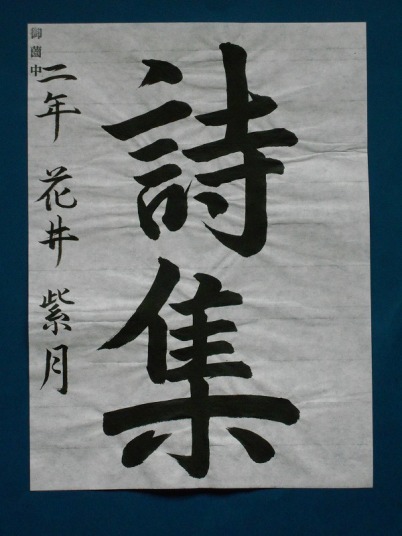 詩集
御薗中
二年 花井 紫月